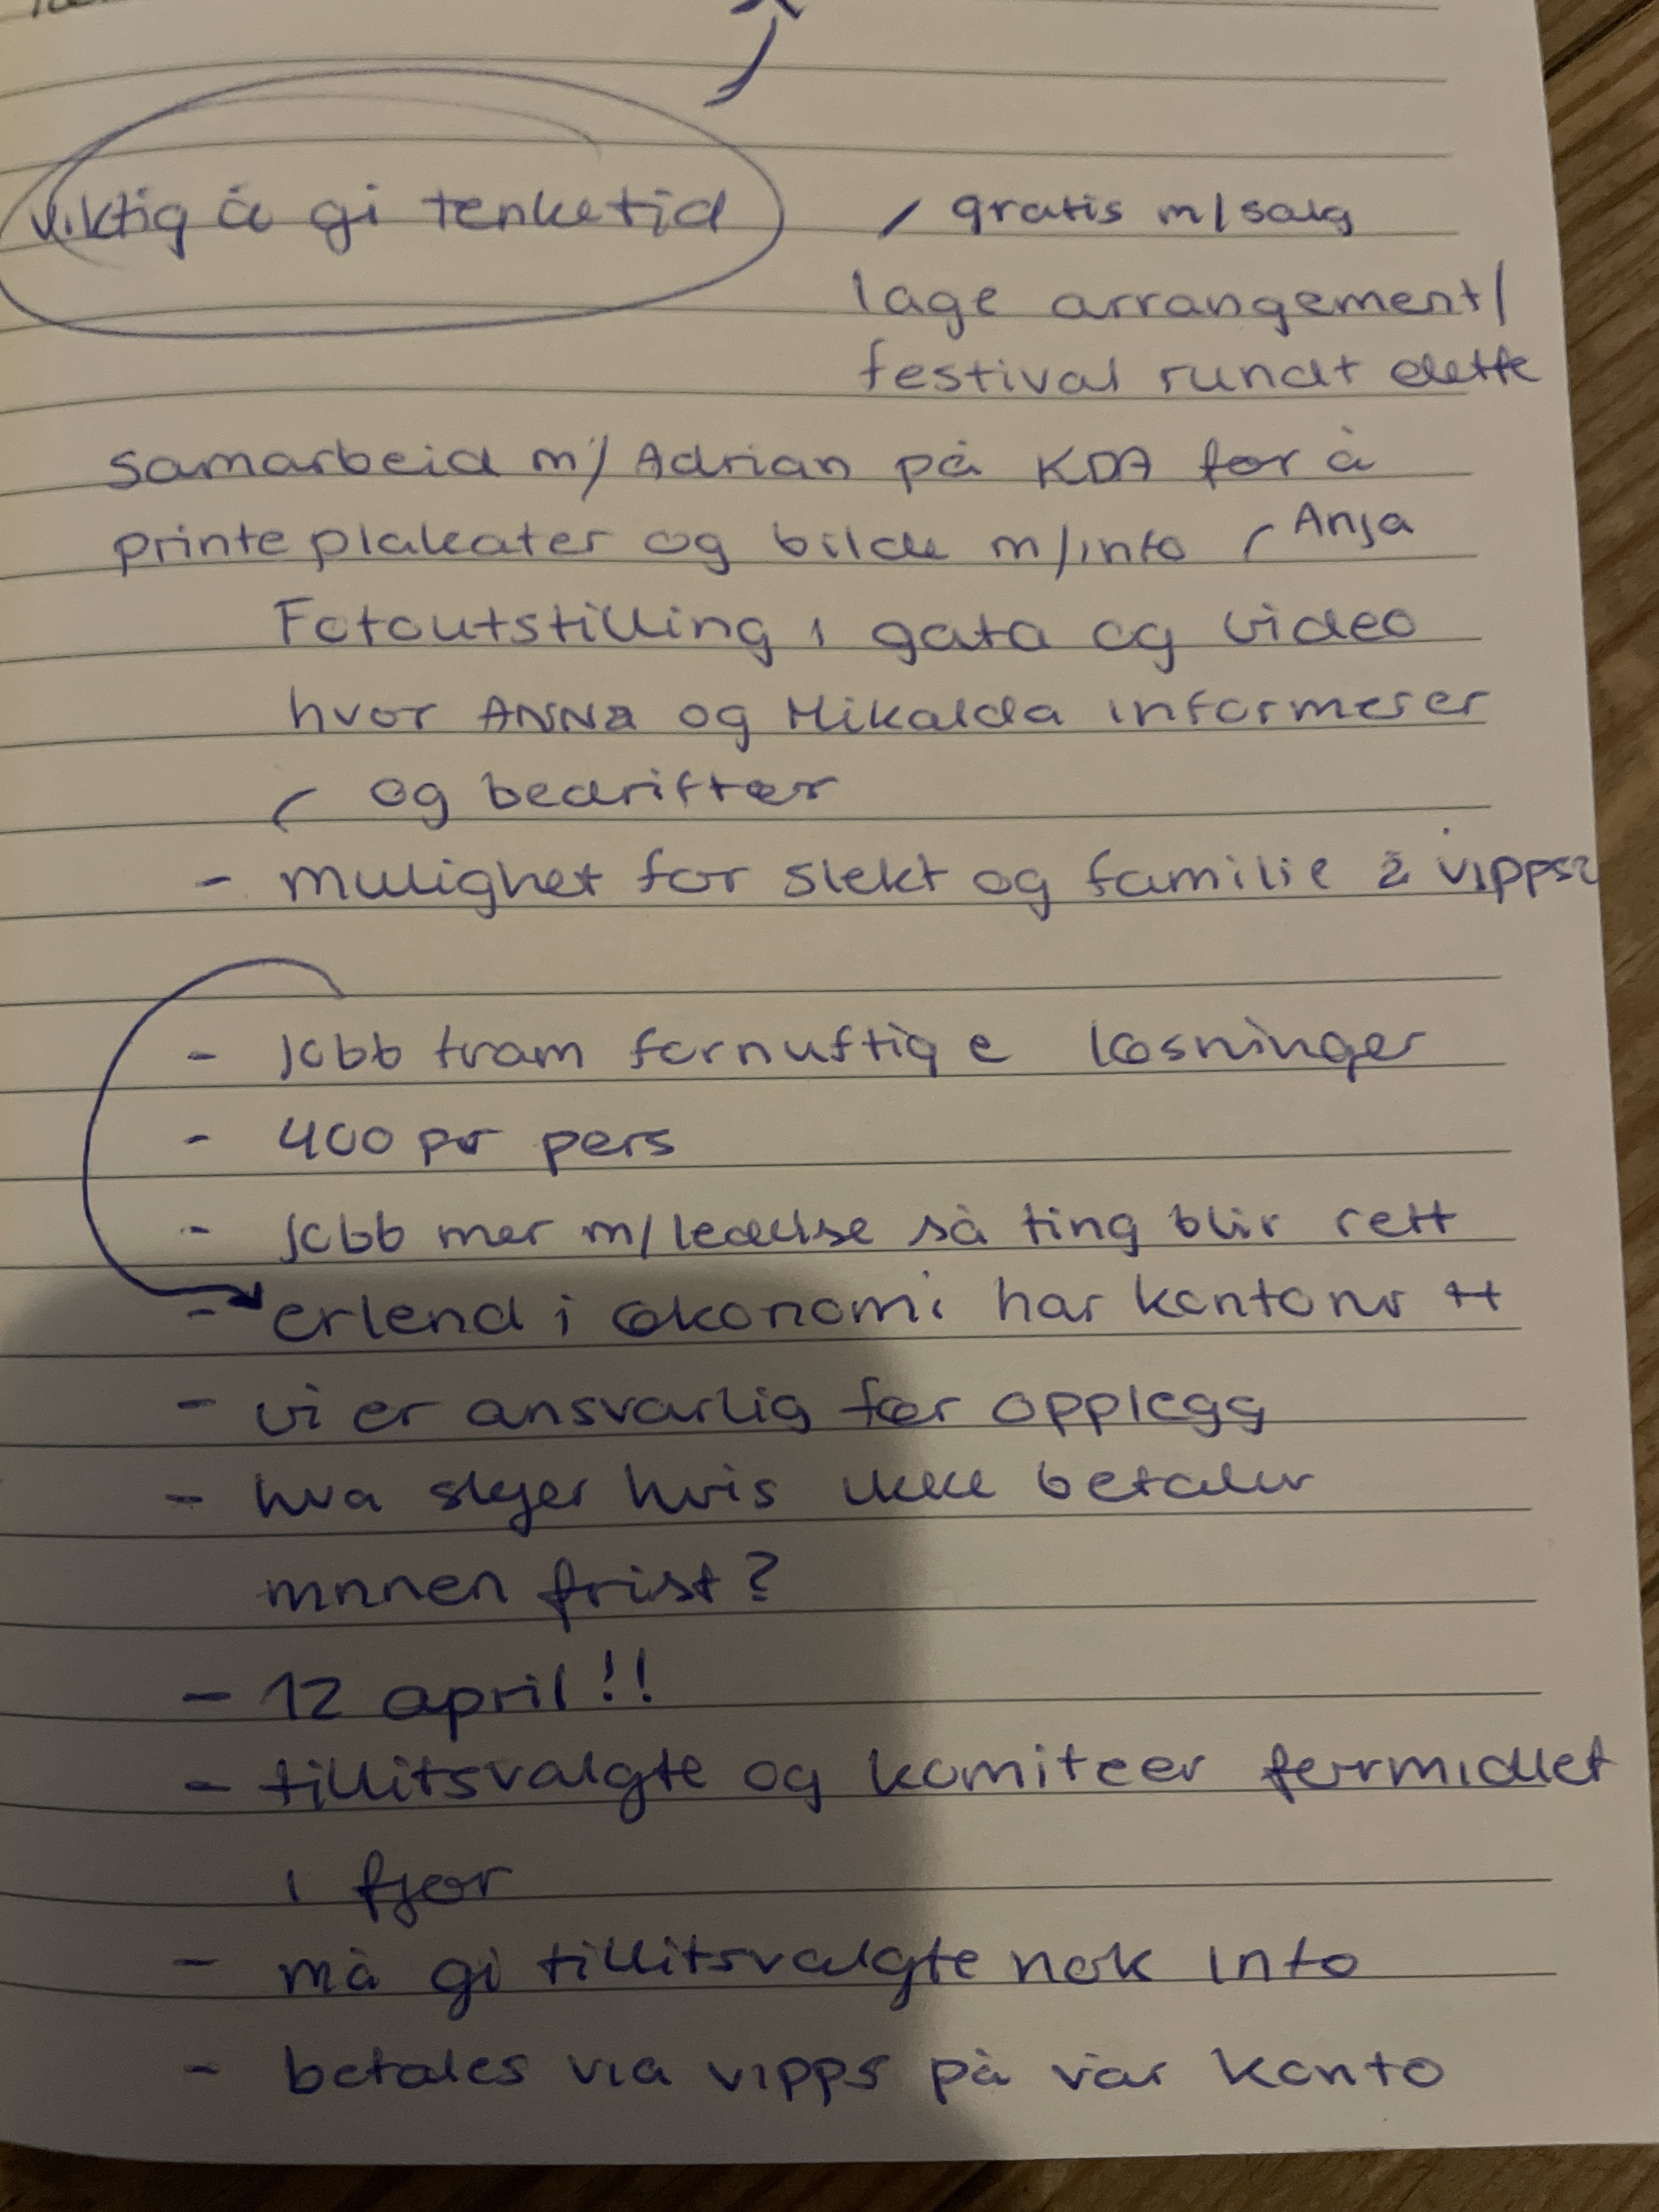 viktig å gi tenketid
/ gratis m/salg
lage arrangement/
festival rundt dette
samarbeid m/ Adrian på KDA for å
printe plakater og bilde m/info
Anja
Fotoutstilling i gata og video
hvor ANNA og Mikalda informerer
og bedrifter
- mulighet for slekt og familie å vippse
- jobb fram fornuftige løsninger
- 400 pr pers
- jobb mer m/ledelse så ting blir rett
- erlend i økonomi har kontonr ++
- vi er ansvarlig for opplegg
- hva skjer hvis ikke betaler
innen frist?
- 12 april!!
- tillitsvalgte og komiteer formidlet
i fjor
- må gi tillitsvalgte nok info
- betales via vipps på vår konto